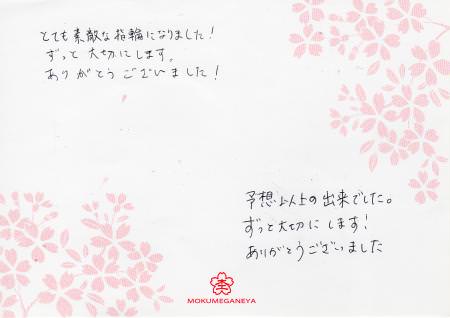 とても素敵な指輪になりました!
ずっと大切にします。
ありがとうございました!
予想以上の出来でした。
ずっと大切にします!
ありがとうございました
杢
MOKUMEGANEYA